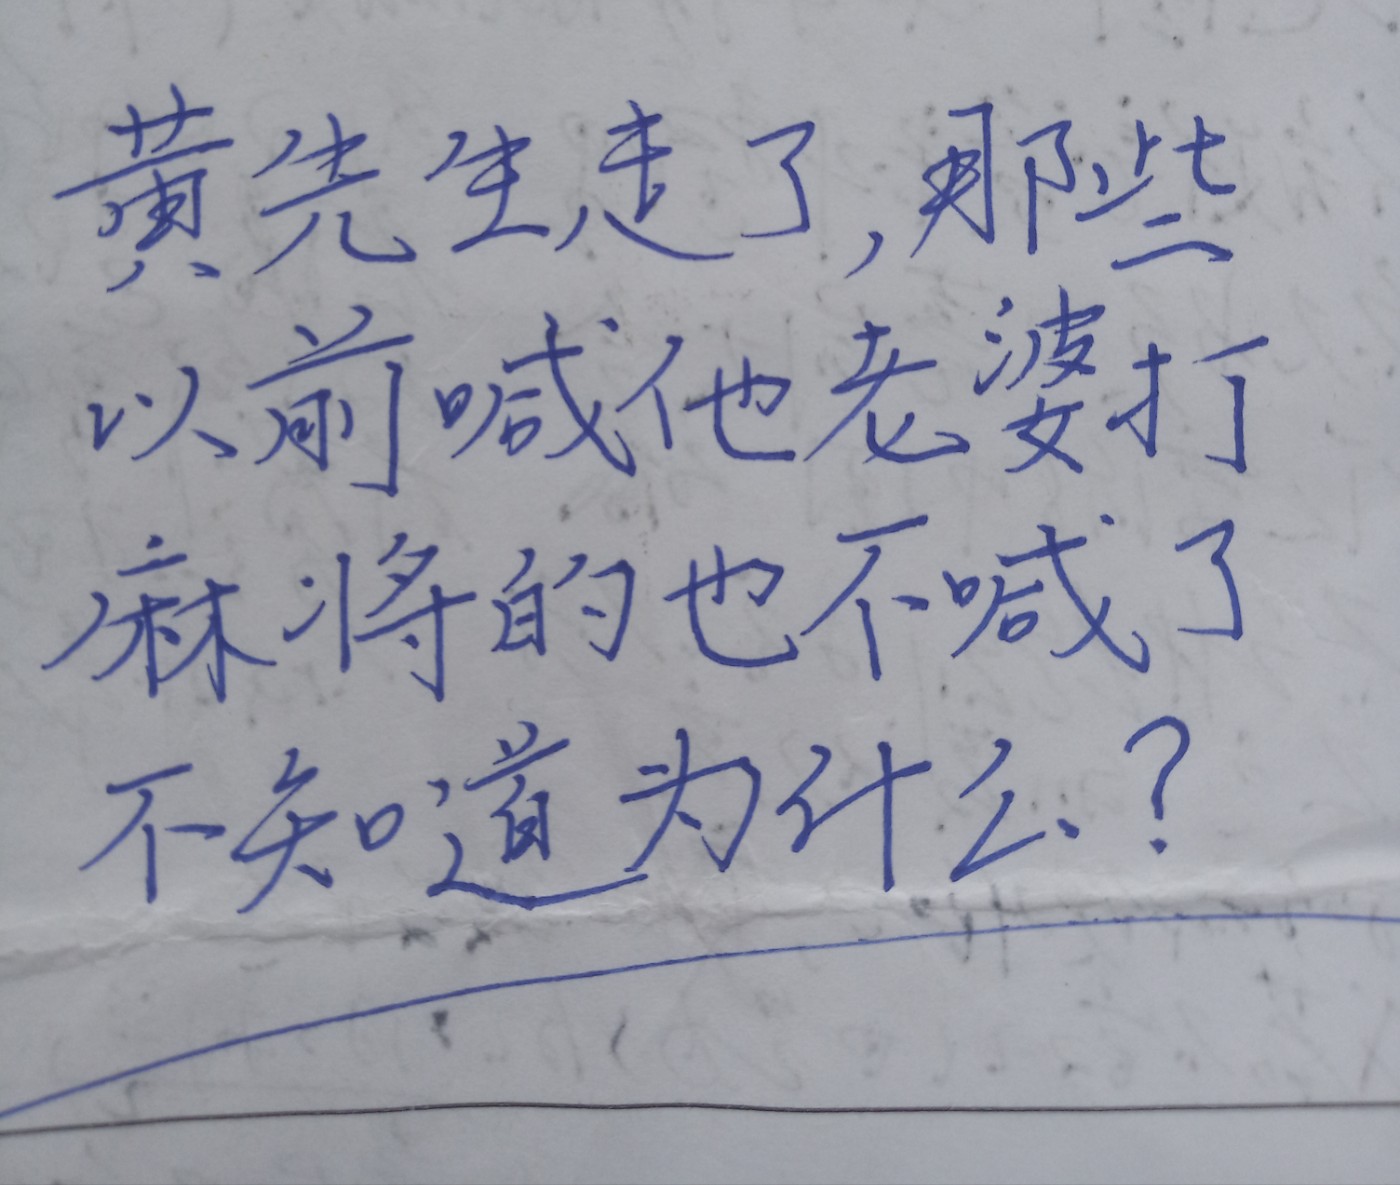 黄先生走了,那些
以前喊他老婆打
麻将的也不喊了
不知道为什么?